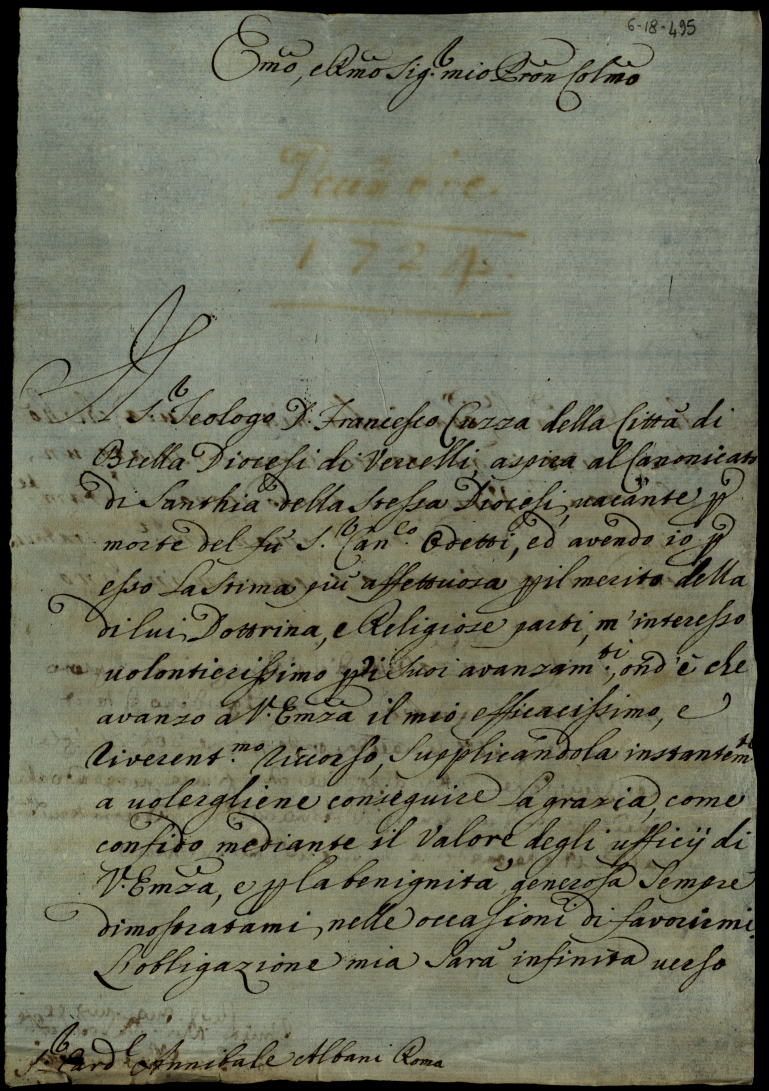 6-18-495
Emo, e Rmo Sig.r mio Pron Colmo
Decembre
1724.
Il S.r Teologo D. Francesco Cuzza della Città di
Biella Diocesi di Vercelli, aspira al Canonicato
di Santhià della stessa Diocesi, vacante p
morte del fù S.r Can.co Odetti, ed avendo io p
esso la stima più affettuosa p il merito della
di lui Dottrina, e Religiose parti, m'interesso
volontierissimo p i suoi avanzam.ti, ond'è che
avanzo à V. Emza il mio efficacissimo, e
riverent.mo ricorso, supplicandola instantem.te
a volergliene conseguire la grazia, come
confido mediante il valore degli ufficij di
V. Emza, e p la benignità generosa sempre
dimostratami nelle occasioni di favorirmi.
L'obligazione mia sarà infinita verso
S.r Card.l Annibale Albani Roma